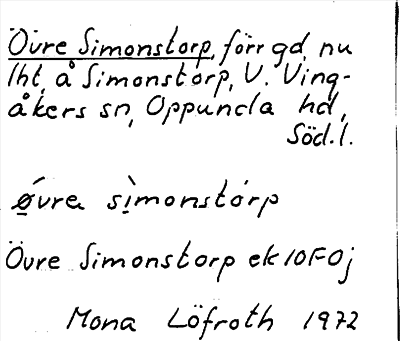 Övre Simonstorp, förr gd, nu
lht, å Simonstorp, V. Ving-
åkers sn, Oppunda hd,
Söd.l.
ǿ̲vrea sì̲monstórp
Övre Simonstorp ek 10F0j
Mona Löfroth 1972